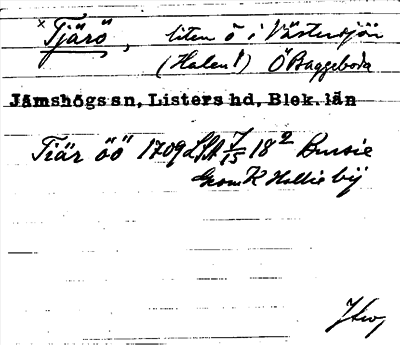 x Tjärö, liten ö i Västersjön
(Halen!) Ö Baggeboda
Jämshögs sn, Listers hd, Blek. län
Tiär öö 1709 LSA 7/15 18²
Grom K Hallie bij